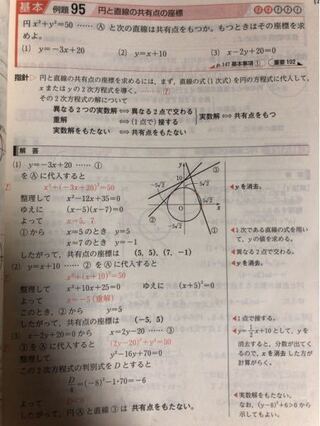 基本 例題 95 円と直線の共有点の座標
円 x²+y²=50 …… Ⓐ と次の直線は共有点をもつか。もつときはその座標を求
めよ。
(1) y=-3x+20 (2) y=x+10 (3) x-2y+20=0
p.147 基本事項 重要 102
指針 円と直線の共有点の座標を求めるには，まず，直線の式(1次式)を円の方程式に代入して，
x または y の2次方程式を導く。
その2次方程式の解について
異なる2つの実数解 ⇔ 異なる2点で交わる
重解 ⇔ (1点で)接する
実数解をもつ ⇔ 共有点をもつ
実数解をもたない ⇔ 共有点をもたない
解答
(1) y=-3x+20 …… ① を Ⓐ に代入すると
x²+(-3x+20)²=50
整理して x²-12x+35=0
ゆえに (x-5)(x-7)=0
よって x=5, 7
①から x=5 のとき y=5
x=7 のとき y=-1
したがって，共有点の座標は (5, 5), (7, -1)
y を消去。
1次である直線の式を用いて，y の値を求める。
異なる2点で交わる。
(2) y=x+10 …… ② を Ⓐ に代入すると
x²+(x+10)²=50
整理して x²+10x+25=0 ゆえに (x+5)²=0
よって x=-5 (重解)
このとき，②から y=5
したがって，共有点の座標は (-5, 5)
y を消去。
1点で接する。
(3) x-2y+20=0 から x=2y-20 …… ③
③を Ⓐ に代入すると (2y-20)²+y²=50
整理して y²-16y+70=0
この2次方程式の判別式を D とすると
D/4=(-8)²-1・70=-6
よって D<0
したがって，円Ⓐと直線③は 共有点をもたない。
y=1/2x+10 として，y を消去すると，分数が出てくるので，x を消去した方が計算がらく。
実数解をもたない。
なお，(y-8)²+6>0 から示してもよい。